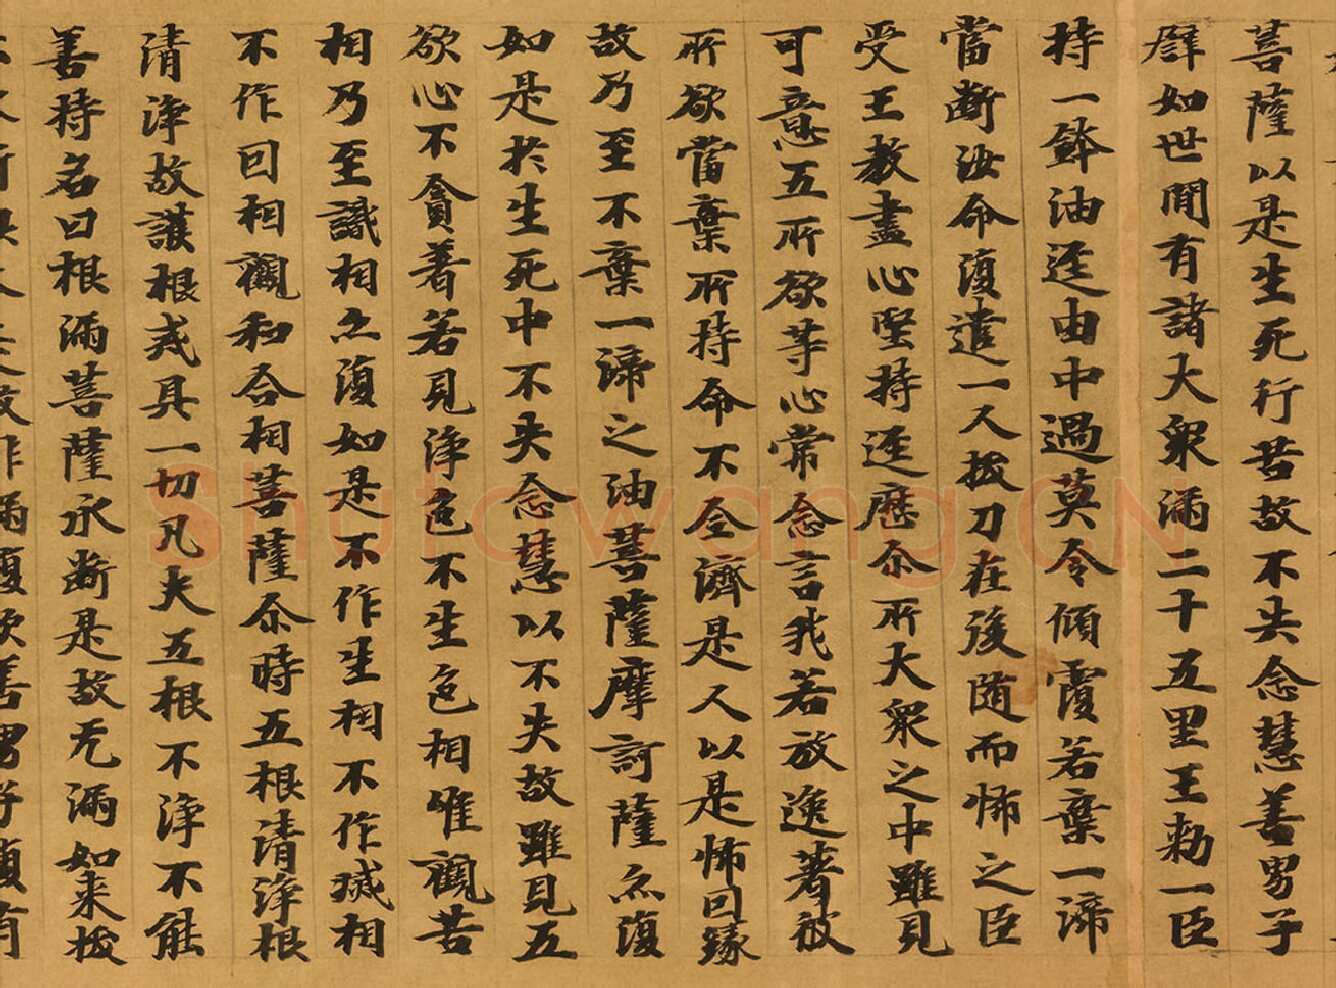 菩薩以是生死行苦故不失念慧善男子
辟如世間有諸大衆滿二十五里王勑一臣
持一鉢油逕由中過莫令傾覆若棄一渧
當斷汝命復遣一人拔刀在後随而怖之臣
受王教盡心堅持逕歷尒所大衆之中雖見
可意五所欲等心常念言我若放逸著彼
所欲當棄所持命不全濟是人以是怖回緣
故乃至不棄一渧之油菩薩摩訶薩亦復
如是於生死中不失念慧以不失故雖見五
欲心不貪著若見淨色不生色相唯觀苦
相乃至識相亦復如是不作生相不作滅相
不作回相觀和合相菩薩尒時五根清淨根
清淨故護根戒具一切凡夫五根不淨不能
善持名曰根漏菩薩永斷是故无漏如来拔
Shufawang.CN